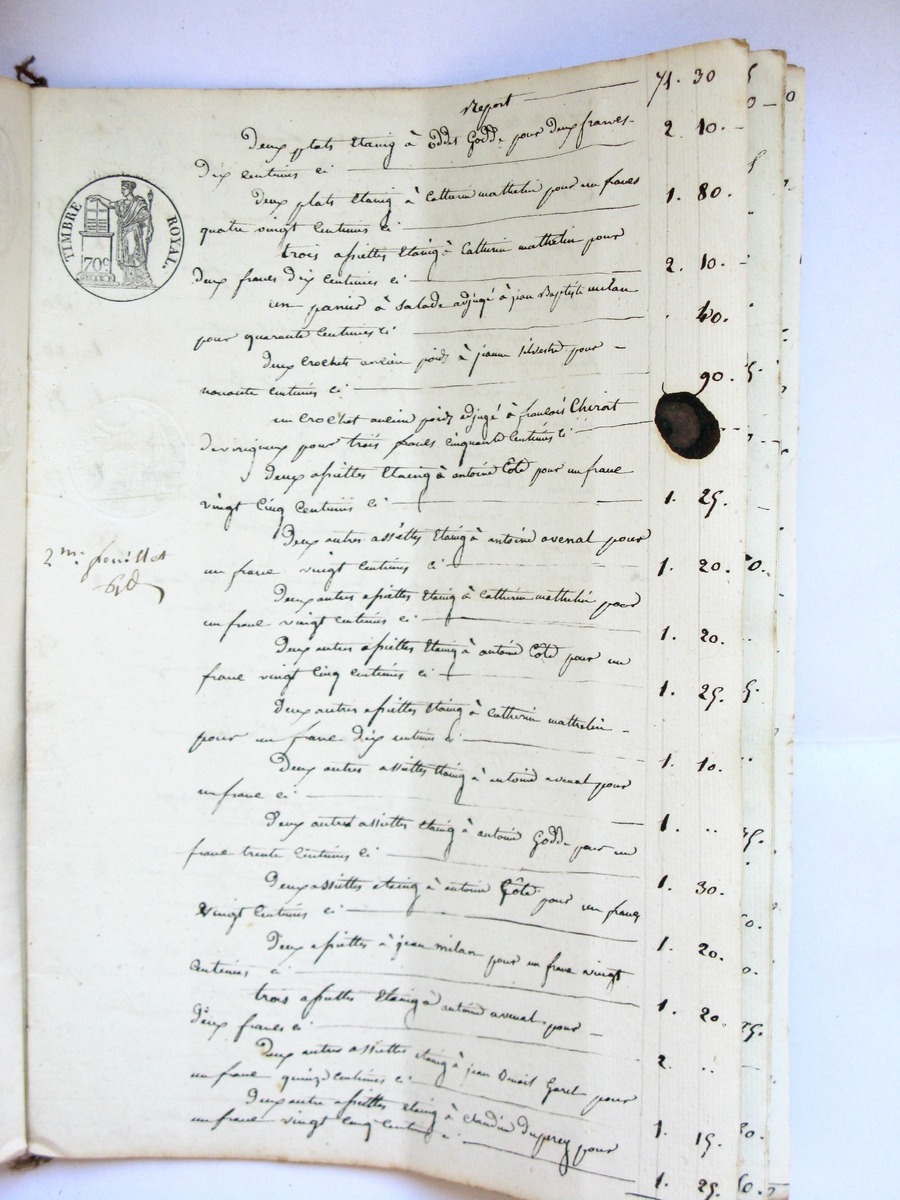 Report 71. 30
Deux plats Etaing à Godde pour deux francs
Dix centimes ci 2 10.
Deux plats Etaing à Catherin mathelin pour un franc
quatre vingt Centimes ci 1. 80.
trois assiettes Etaing à Catherin mathelin pour
deux francs dix Centimes ci 2. 10.
un panier à Salade adjugé à jean Baptiste milan
pour quarante Centimes ci 40.
deux Crochets ancien poids à jeanne Silvestre pour
nonante Centimes ci 90.
un Crochet ancien poids adjugé à francois
pour trois francs cinquante Centimes ci
deux assiettes Etaing à antoine Coté pour un franc
vingt Cinq Centimes ci 1. 25.
Deux autres assiettes Etaing à antoine avenal pour
un franc vingt Centimes ci 1. 20.
Deux autres assiettes Etaing à Catherin mathelin pour
un franc vingt Centimes ci 1. 20.
Deux autres assiettes Etaing à antoine Coté pour un
franc vingt Cinq Centimes ci 1. 25.
Deux autres assiettes Etaing à Catherin mathelin
pour un franc dix centimes ci 1. 10.
Deux autres assiettes Etaing à antoine avenal pour
un franc ci 1. ..
Deux autres assiettes Etaing à antoine Godde pour un
franc trente Centimes ci 1. 30.
Deux assiettes etaing à antoine Côté pour un franc
vingt Centimes ci 1. 20.
Deux assiettes à jean milan pour un franc vingt
centimes ci 1. 20.
trois assiettes Etaing à antoine avenal pour
Deux francs ci 2. ..
Deux autres assiettes etaing à jean Garel pour
un franc quinze Centimes ci 1. 15.
Deux autre assiettes etaing à claudine Duperey pour
un franc vingt Cinq Centimes ci 1. 25.
TIMBRE ROYAL.
70c
2me feuillet